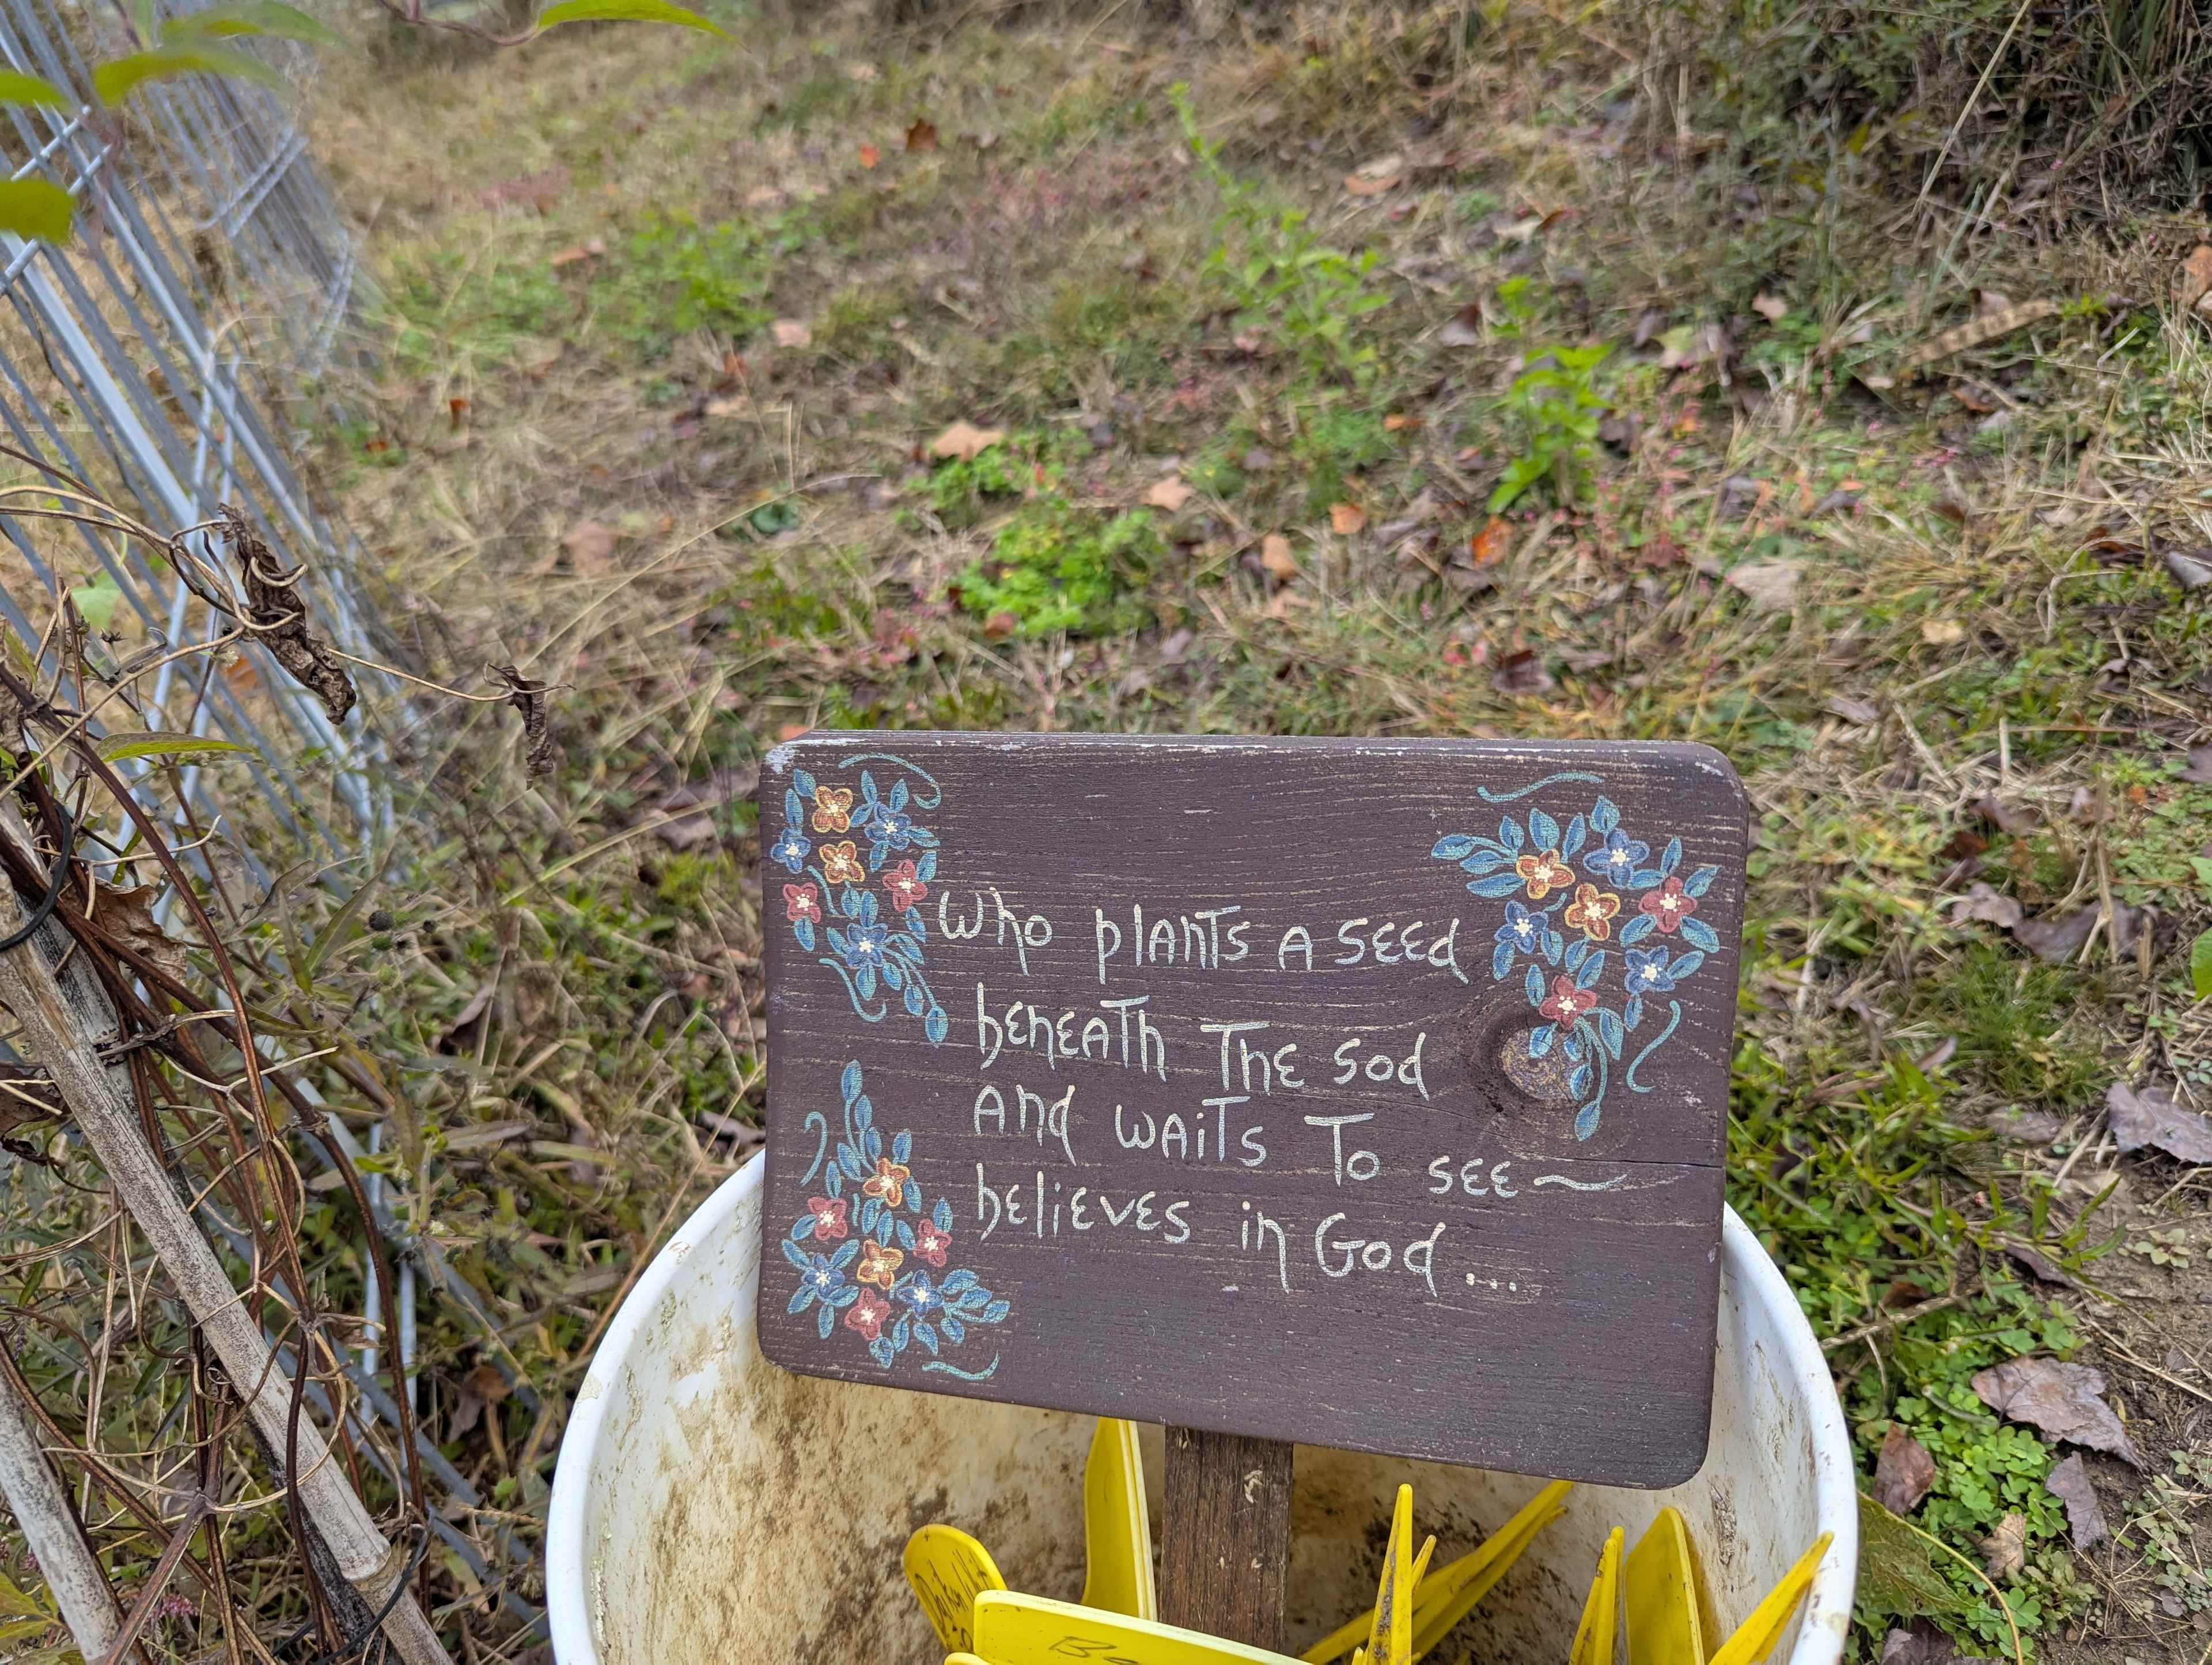 Who plants a seed
beneath the sod
and waits to see~
believes in God...